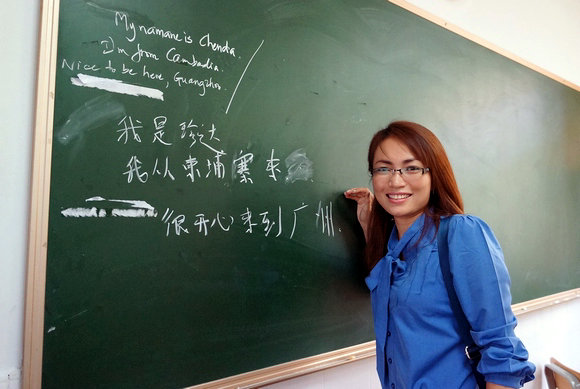 My namane is Chenda.
I'm from Cambodia.
Nice to be here, Guangzhou.
我是珍达
我从柬埔寨来
很开心来到广州.